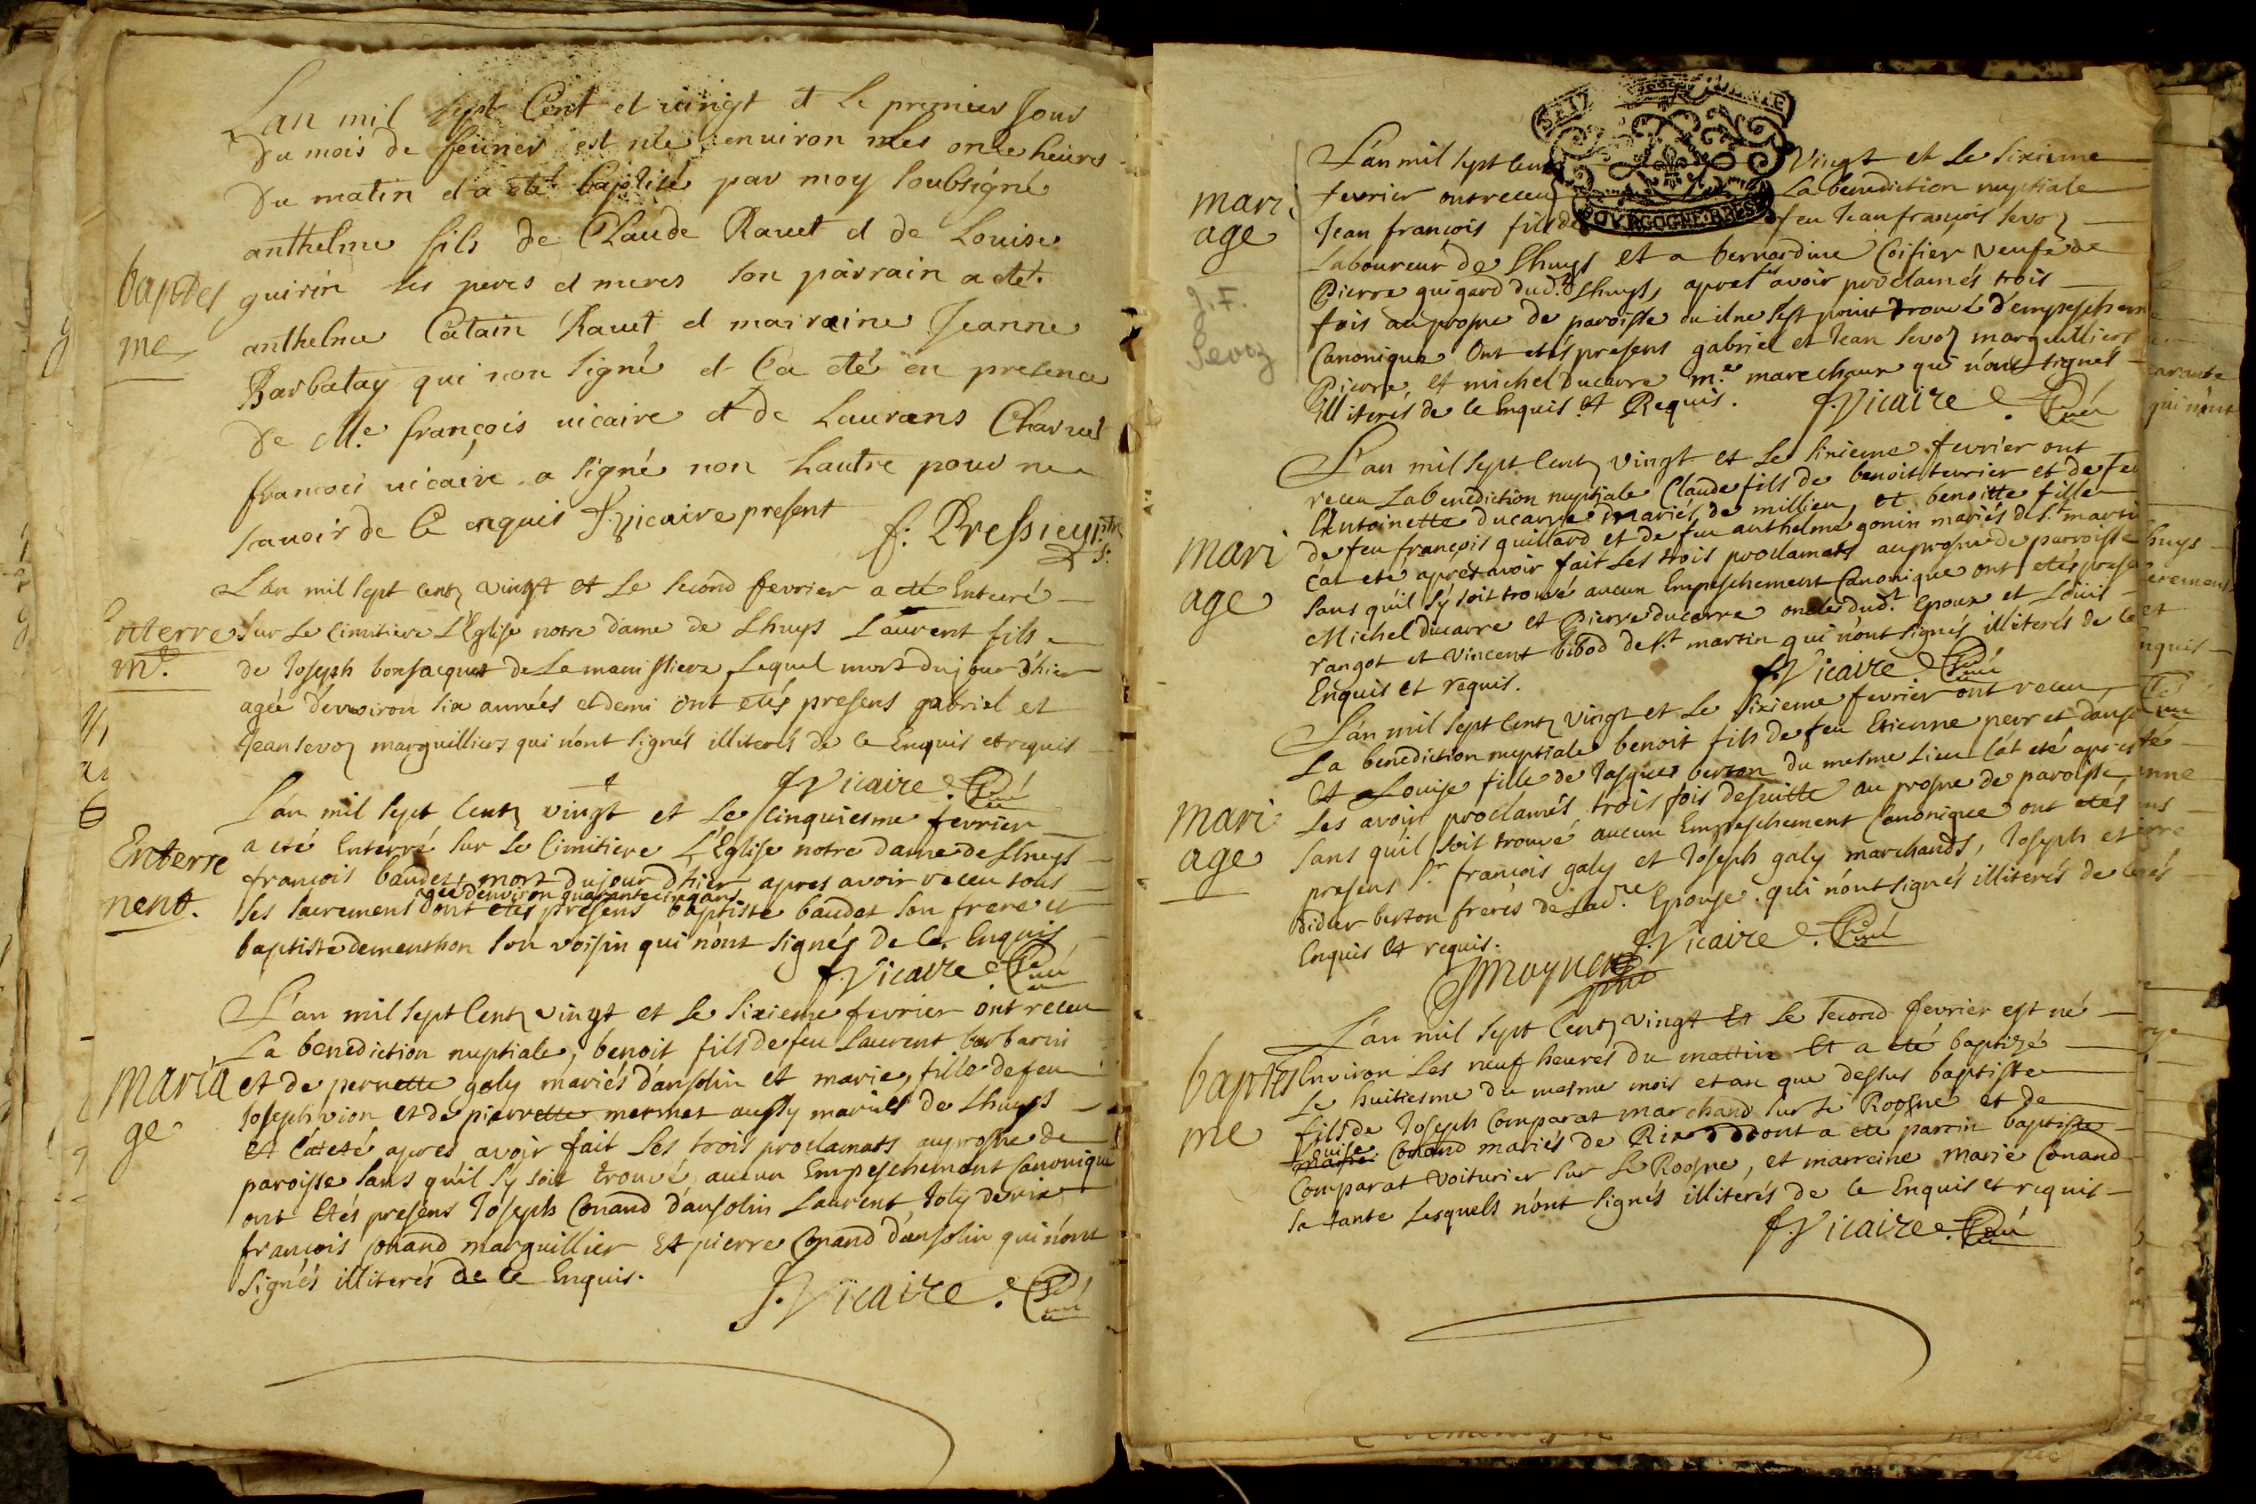 Lan mil sept Cent et vingt et le premier Jour
Du mois de feuvrier est née environ les onze heures
Du matin et a été baptisé par moy soubsigné
anthelme fils de Claude Ravet et de Louise
baptes
me
guirin ses peres et meres son parrain a eté
anthelme Catain Ravet et mairaine Jeanne
Barbatay qui non signé et Ca eté en presence
De Me françois vicaire et de Laurans Charvet
francois vicaire a signé non Lautre pour ne
scavoir de Ce enquis f. vicaire present
f. Pressieu ptre
L'an mil sept centz vingt et Le second fevrier a eté Enterré
nterre
mt.
sur Le Cimitiere L'Eglise notre dame de Lhuys Laurent fils
de Joseph bonjacquet de Lemanissiere Lequel mort dujour d'hier
ageé d'environ six années et demi ont etés presens gabriel et
Jean sevoz marguilliers qui n'ont signés illiterés de Ce Enquis et requis
f. Vicaire Curé
L'an mil sept Centz vingt et Le Cinquiesme fevrier
Enterre
ment.
a eté Enterré sur Le Cimitiere L'Eglise notre dame de Lhuys
francois baudet mort dujour d'hier apres avoir receu tous
ageé d'environ quarante cinq ans
ses sacremens dont etés presens baptiste baudet son frere et
baptiste dementhon son voisin qui n'ont signés de Ce Enquis
f. Vicaire Curé
L'an mil sept Centz vingt et Le sixieme fevrier ont receu
La benediction nuptiale, benoit fils de feu Laurent barbarin
Maria
ge
et de pernette galy mariés d'ansolin et marie, fille de feu
Joseph vion et de pierrette mermet aussy mariés de Lhuys
et Cat eté apres avoir fait Les trois proclamats au prosne de
paroisse sans qu'il s'y soit trouvé aucun Empeschement Canonique
ont Etés presens Joseph Conand d'ansolin Laurent Joly de rix
francois Conand marguillier Et pierre Conand d'ansolin qui n'ont
signés illiterés de Ce Enquis.
f. Vicaire Curé
BOVRGOGNE BRESSE
mari
age
J. F.
Sevoz
L'an mil sept Cent Vingt et Le sixieme
fevrier ont receu La benediction nuptiale
Jean françois fils de feu Jean françois sevoz
Laboureur de Lhuys et a bernardine Coisier veufe de
Pierre guigard dud.t Lhuys, apres avoir proclamés trois
fois au prosne de paroisse ou il ne s'est point trouvé d'empeschem
Canonique Ont etés presens gabriel et Jean sevoz marguilliers
Pierre et michel Ducarre m.es marechaux qui n'ont signés
illiterés de Ce Enquis et Requis. f. Vicaire Curé
L'an mil sept Centz vingt et Le sixieme fevrier ont
receu La benediction nuptiale Claude fils de benoit tenrier et de feu
mari
age
Antoinette ducarre mariés de millieu, et benoitte fille
de feu françois guillard et de feu anthelme gonin mariés de s.t martin
Cat eté apres avoir fait Les trois proclamats au prosne de parroisse
sans qu'il s'y soit trouvé aucun Empeschement Canonique ont etés presens
Michel ducarre et Pierre ducarre oncle dud.t Epoux et Louis
rangot et vincent bibod de s.t martin qui n'ont signés illiterés de Ce
Enquis et requis. f. Vicaire Curé
L'an mil sept Centz vingt et Le sixieme fevrier ont receu
La benediction nuptiale benoit fils de feu Etienne peyr et d'ansolin
mari
age
et Louise fille de Jasques berton du mesme Lieu Cat eté apres
Les avoir proclamés trois fois desuitte au prosne de paroisse
sans qu'il soit trouvé aucun Empeschement Canonique ont etés
presens s.r francois galy et Joseph galy marchands, Joseph et
Didier berton freres de Lad.te Epouse qui n'ont signés illiterés de Ce
Enquis et requis. f. Vicaire Curé
L'an mil sept Centz vingt Et Le second fevrier est né
baptes
me
Environ Les neuf heures du mattin Et a eté baptizé
Le huitiesme du mesme mois et an que dessus baptiste
fils de Joseph Comparat marchand sur Le Roosne et de
Louise
marie Conand mariés de Rix dont a eté parrin baptiste
Comparat voiturier sur Le Roosne, et marreine marie Conand
sa tante Lesquels n'ont signés illitérés de Ce Enquis et requis
f. Vicaire Curé